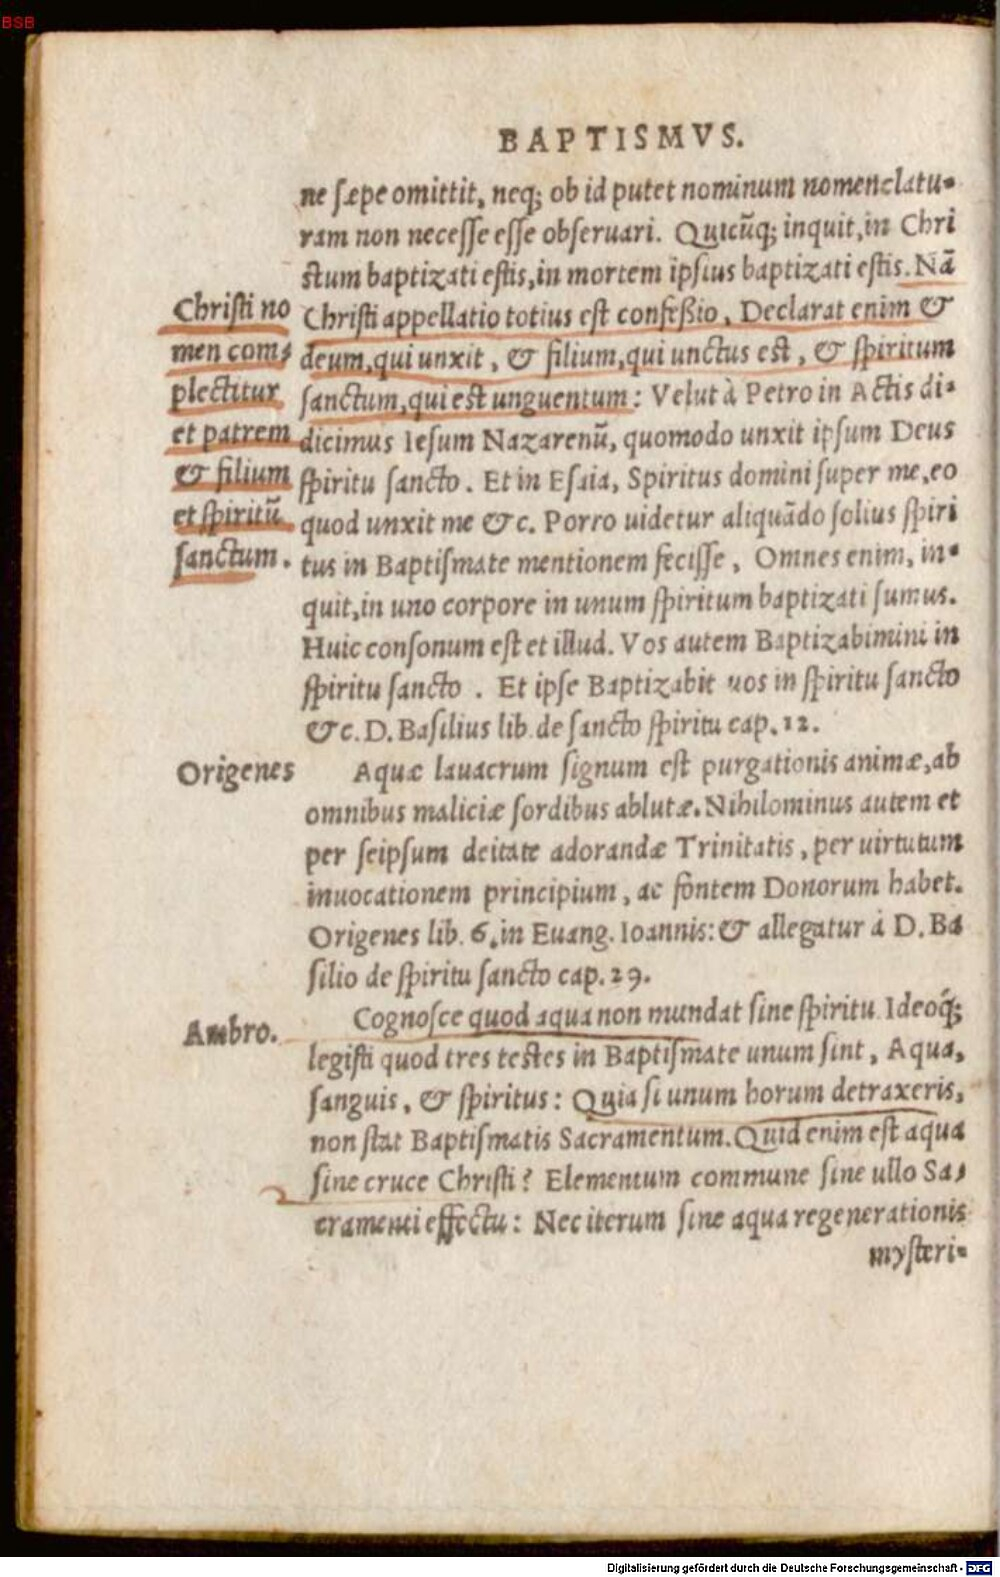 BSB
BAPTISMVS.
ne sæpe omittit, neq; ob id putet nominum nomenclatu-
ram non necesse esse obseruari. Quicũq; inquit, in Chri
stum baptizati estis, in mortem ipsius baptizati estis. Nã
Christi appellatio totius est confeßio, Declarat enim &
deum, qui unxit, & filium, qui unctus est, & spiritum
sanctum, qui est unguentum: Velut à Petro in Actis di-
dicimus Iesum Nazarenũ, quomodo unxit ipsum Deus
spiritu sancto. Et in Esaia, Spiritus domini super me, eo
quod unxit me &c. Porro uidetur aliquãdo solius spiri
tus in Baptismate mentionem fecisse, Omnes enim, in-
quit, in uno corpore in unum spiritum baptizati sumus.
Huic consonum est et illud. Vos autem Baptizabimini in
spiritu sancto. Et ipse Baptizabit uos in spiritu sancto
&c. D. Basilius lib. de sancto spiritu cap. 12.
Christi no
men com-
plectitur
et patrem
& filium
et spiritũ
sanctum.
Origenes
Aquæ lauacrum signum est purgationis animæ, ab
omnibus maliciæ sordibus ablutæ. Nihilominus autem et
per seipsum deitate adorandæ Trinitatis, per uirtutum
inuocationem principium, ac fontem Donorum habet.
Origenes lib. 6. in Euang. Ioannis: & allegatur à D. Ba
silio de spiritu sancto cap. 29.
Ambro.
Cognosce quod aqua non mundat sine spiritu. Ideoq́;
legisti quod tres testes in Baptismate unum sint, Aqua,
sanguis, & spiritus: Quia si unum horum detraxeris,
non stat Baptismatis Sacramentum. Quid enim est aqua
sine cruce Christi? Elementum commune sine ullo Sa-
cramenti effectu: Nec iterum sine aqua regenerationis
mysteri-
Digitalisierung gefördert durch die Deutsche Forschungsgemeinschaft - DFG